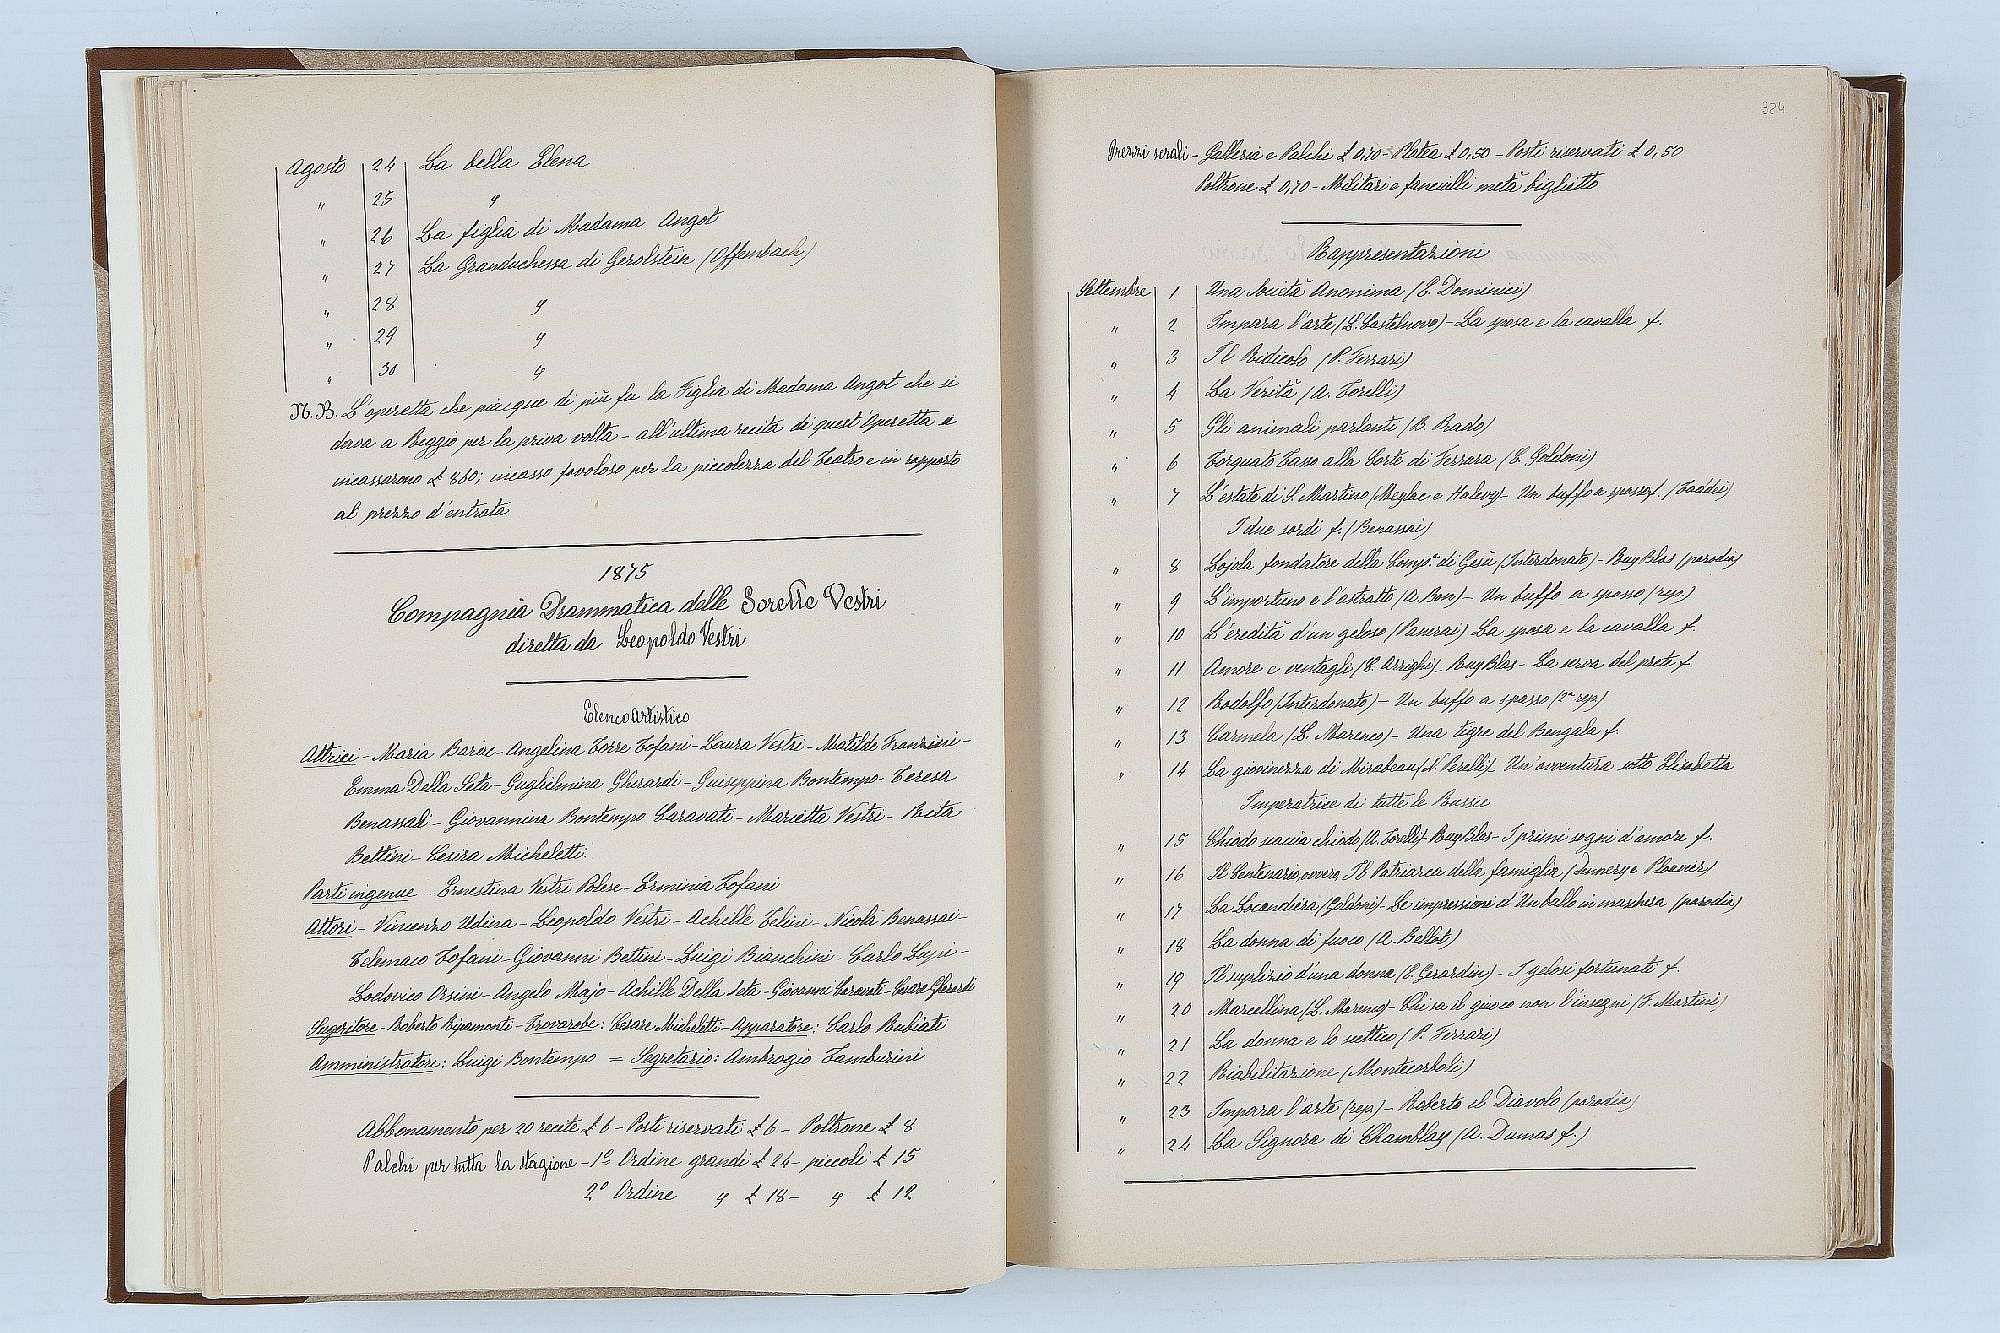 Agosto 24 La bella Elena
" 25 "
" 26 La figlia di Madama Angot
" 27 La Granduchessa di Gerolstein (Offenbach)
" 28 "
" 29 "
" 30 "
N.B. L'operetta che piacque di più fu la Figlia di Madama Angot che si
dava a Reggio per la prima volta - all'ultima recita di quest'Operetta si
incassarono £ 880; incasso favoloso per la piccolezza del Teatro e in rapporto
al prezzo d'entrata
1875
Compagnia Drammatica delle Sorelle Vestri
diretta da Leopoldo Vestri
Elenco Artistico
Attrici - Maria Barac - Angelina Torre Tofani - Laura Vestri - Matilde Franzini -
Emma Della Seta - Guglielmina Gherardi - Guiseppina Bontempo - Teresa
Benassai - Giovannina Bontempo Caravati - Marietta Vestri - Rita
Bettini - Cesira Micheletti.
Parti ingenue Ernestina Vestri Polese - Erminia Tofani
Attori - Vincenzo Udina - Leopoldo Vestri - Achille Telini - Nicola Benassai -
Telemaco Tofani - Giovanni Bettini - Luigi Bianchini Carlo Lupi -
Lodovico Orsini - Angelo Majo - Achille Della Seta - Giovanni Caravati - Cesare Gherardi
Sugeritore - Roberto Ripamonti - Trovarobe: Cesare Micheletti - Apparatore: Carlo Rubiati
Amministratore: Luigi Bontempo = Segretario: Ambrogio Tamburini
Abbonamento per 20 recite £ 6 - Posti riservati £ 6 - Poltrone £ 8
Palchi per tutta la stagione - 1° Ordine grandi £ 24 - piccoli £ 15
2° Ordine " £ 18 - " £ 12
324
Prezzi serali - Galleria e Palchi £ 0,70 - Platea £ 0,50 - Posti riservati £ 0,50
Poltrone £ 0,70 - Militari e fanciulli metà biglietto
Rappresentazioni
Settembre 1 Una Società Anonima (E. Dominici)
" 2 Impara l'arte (L. Castelnovo) - La sposa e la cavalla f.
" 3 Il Ridicolo (P. Ferrari)
" 4 La Verità (A. Torelli)
" 5 Gli animali parlanti (B. Prado)
" 6 Torquato Tasso alla Corte di Ferrara (C. Goldoni)
" 7 L'estate di S. Martino (Meylac e Halevy) - Un buffo a spasso f. (Taddei)
I due sordi f. (Benassai)
" 8 Lojola fondatore della Comp.a di Gesù (Interdonato) - Ruy Blas (parodia)
" 9 L'importuno e l'astratto (A. Bon) - Un buffo a spasso (rep)
" 10 L'eredità d'un geloso (Panerai) La sposa e la cavalla f.
" 11 Amore e ventagli (C. Arrighi) - Ruy Blas - La serva del prete f.
" 12 Rodolfo (Interdonato) - Un buffo a spasso (2a rep)
" 13 Carmela (L. Marenco) - Una tigre del Bengala f.
" 14 La giovinezza di Mirabeau (N. Perelli) - Un'avventura sotto Elisabetta
Imperatrice di tutte le Russie
" 15 Chiodo caccia chiodo (A. Torelli) - Ruy Blas - I primi sogni d'amore f.
" 16 Il Centenario, ovvero Il Patriarca della famiglia (Dennery e Plouver)
" 17 La Locandiera (Goldoni) - Le impressioni d'Un ballo in maschera (parodia)
" 18 La donna di fuoco (A. Bellot)
" 19 Il suplizio d'una donna (E. Gerardin) - I gelosi fortunati f.
" 20 Marcellina (L. Marenco) - Chi sa il gioco non l'insegni (F. Martini)
" 21 La donna e lo scettico (P. Ferrari)
" 22 Riabilitazione (Montecorboli)
" 23 Impara l'arte (rep) - Roberto il Diavolo (parodia)
" 24 La Signora di Chamblay (A. Dumas f.)